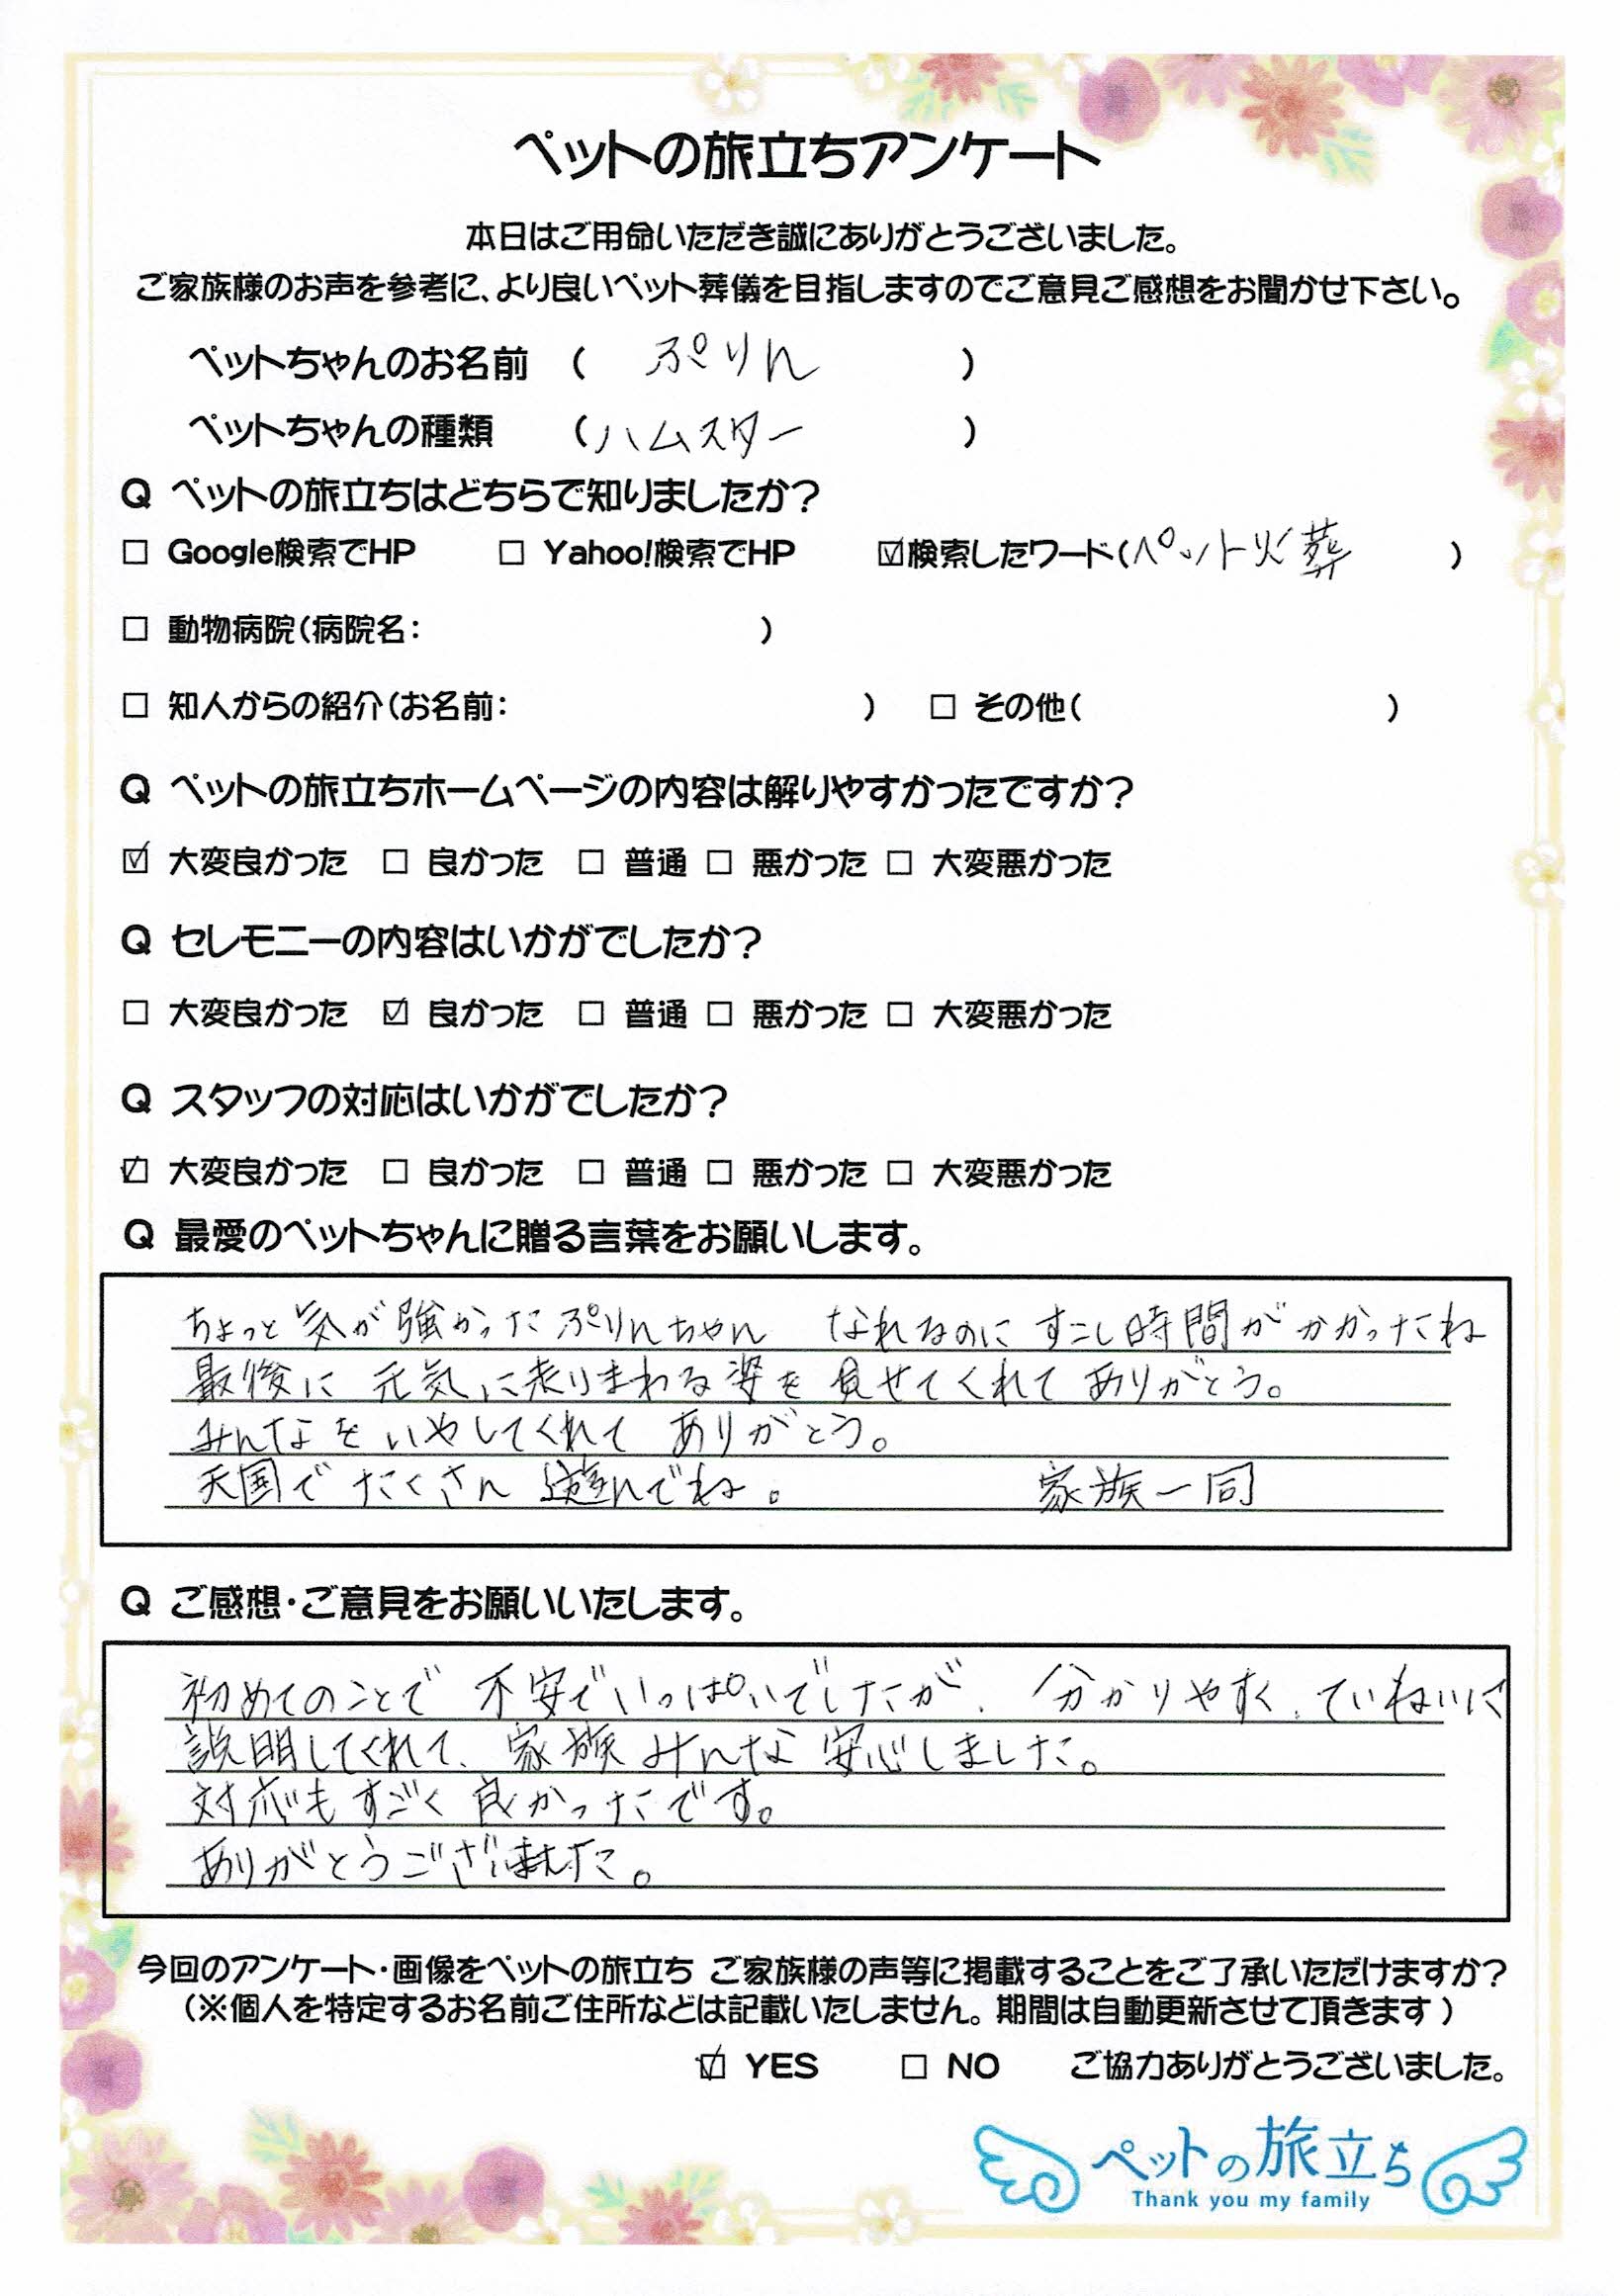 ペットの旅立ちアンケート
本日はご用命いただき誠にありがとうございました。
ご家族様のお声を参考に、より良いペット葬儀を目指しますのでご意見ご感想をお聞かせ下さい。
ペットちゃんのお名前 ( ぷりん )
ペットちゃんの種類 (ハムスター )
Q ペットの旅立ちはどちらで知りましたか?
□ Google検索でHP □ Yahoo!検索でHP ☑検索したワード(ペット火葬 )
□ 動物病院(病院名: )
□ 知人からの紹介(お名前: ) □ その他( )
Q ペットの旅立ちホームページの内容は解りやすかったですか?
☑ 大変良かった □ 良かった □ 普通 □ 悪かった □ 大変悪かった
Q セレモニーの内容はいかがでしたか?
□ 大変良かった ☑ 良かった □ 普通 □ 悪かった □ 大変悪かった
Q スタッフの対応はいかがでしたか?
☑ 大変良かった □ 良かった □ 普通 □ 悪かった □ 大変悪かった
Q 最愛のペットちゃんに贈る言葉をお願いします。
ちょっと気が強かったぷりんちゃん なれるのにすこし時間がかかったね
最後に元気に走りまわる姿を見せてくれてありがとう。
みんなをいやしてくれてありがとう。
天国でたくさん遊んでね。 家族一同
Q ご感想・ご意見をお願いいたします。
初めてのことで不安でいっぱいでしたが、分かりやすく、ていねいに
説明してくれて、家族みんな安心しました。
対応もすごく良かったです。
ありがとうございました。
今回のアンケート・画像をペットの旅立ち ご家族様の声等に掲載することをご了承いただけますか?
(※個人を特定するお名前ご住所などは記載いたしません。期間は自動更新させて頂きます)
☑ YES □ NO ご協力ありがとうございました。
ペットの旅立ち
Thank you my family